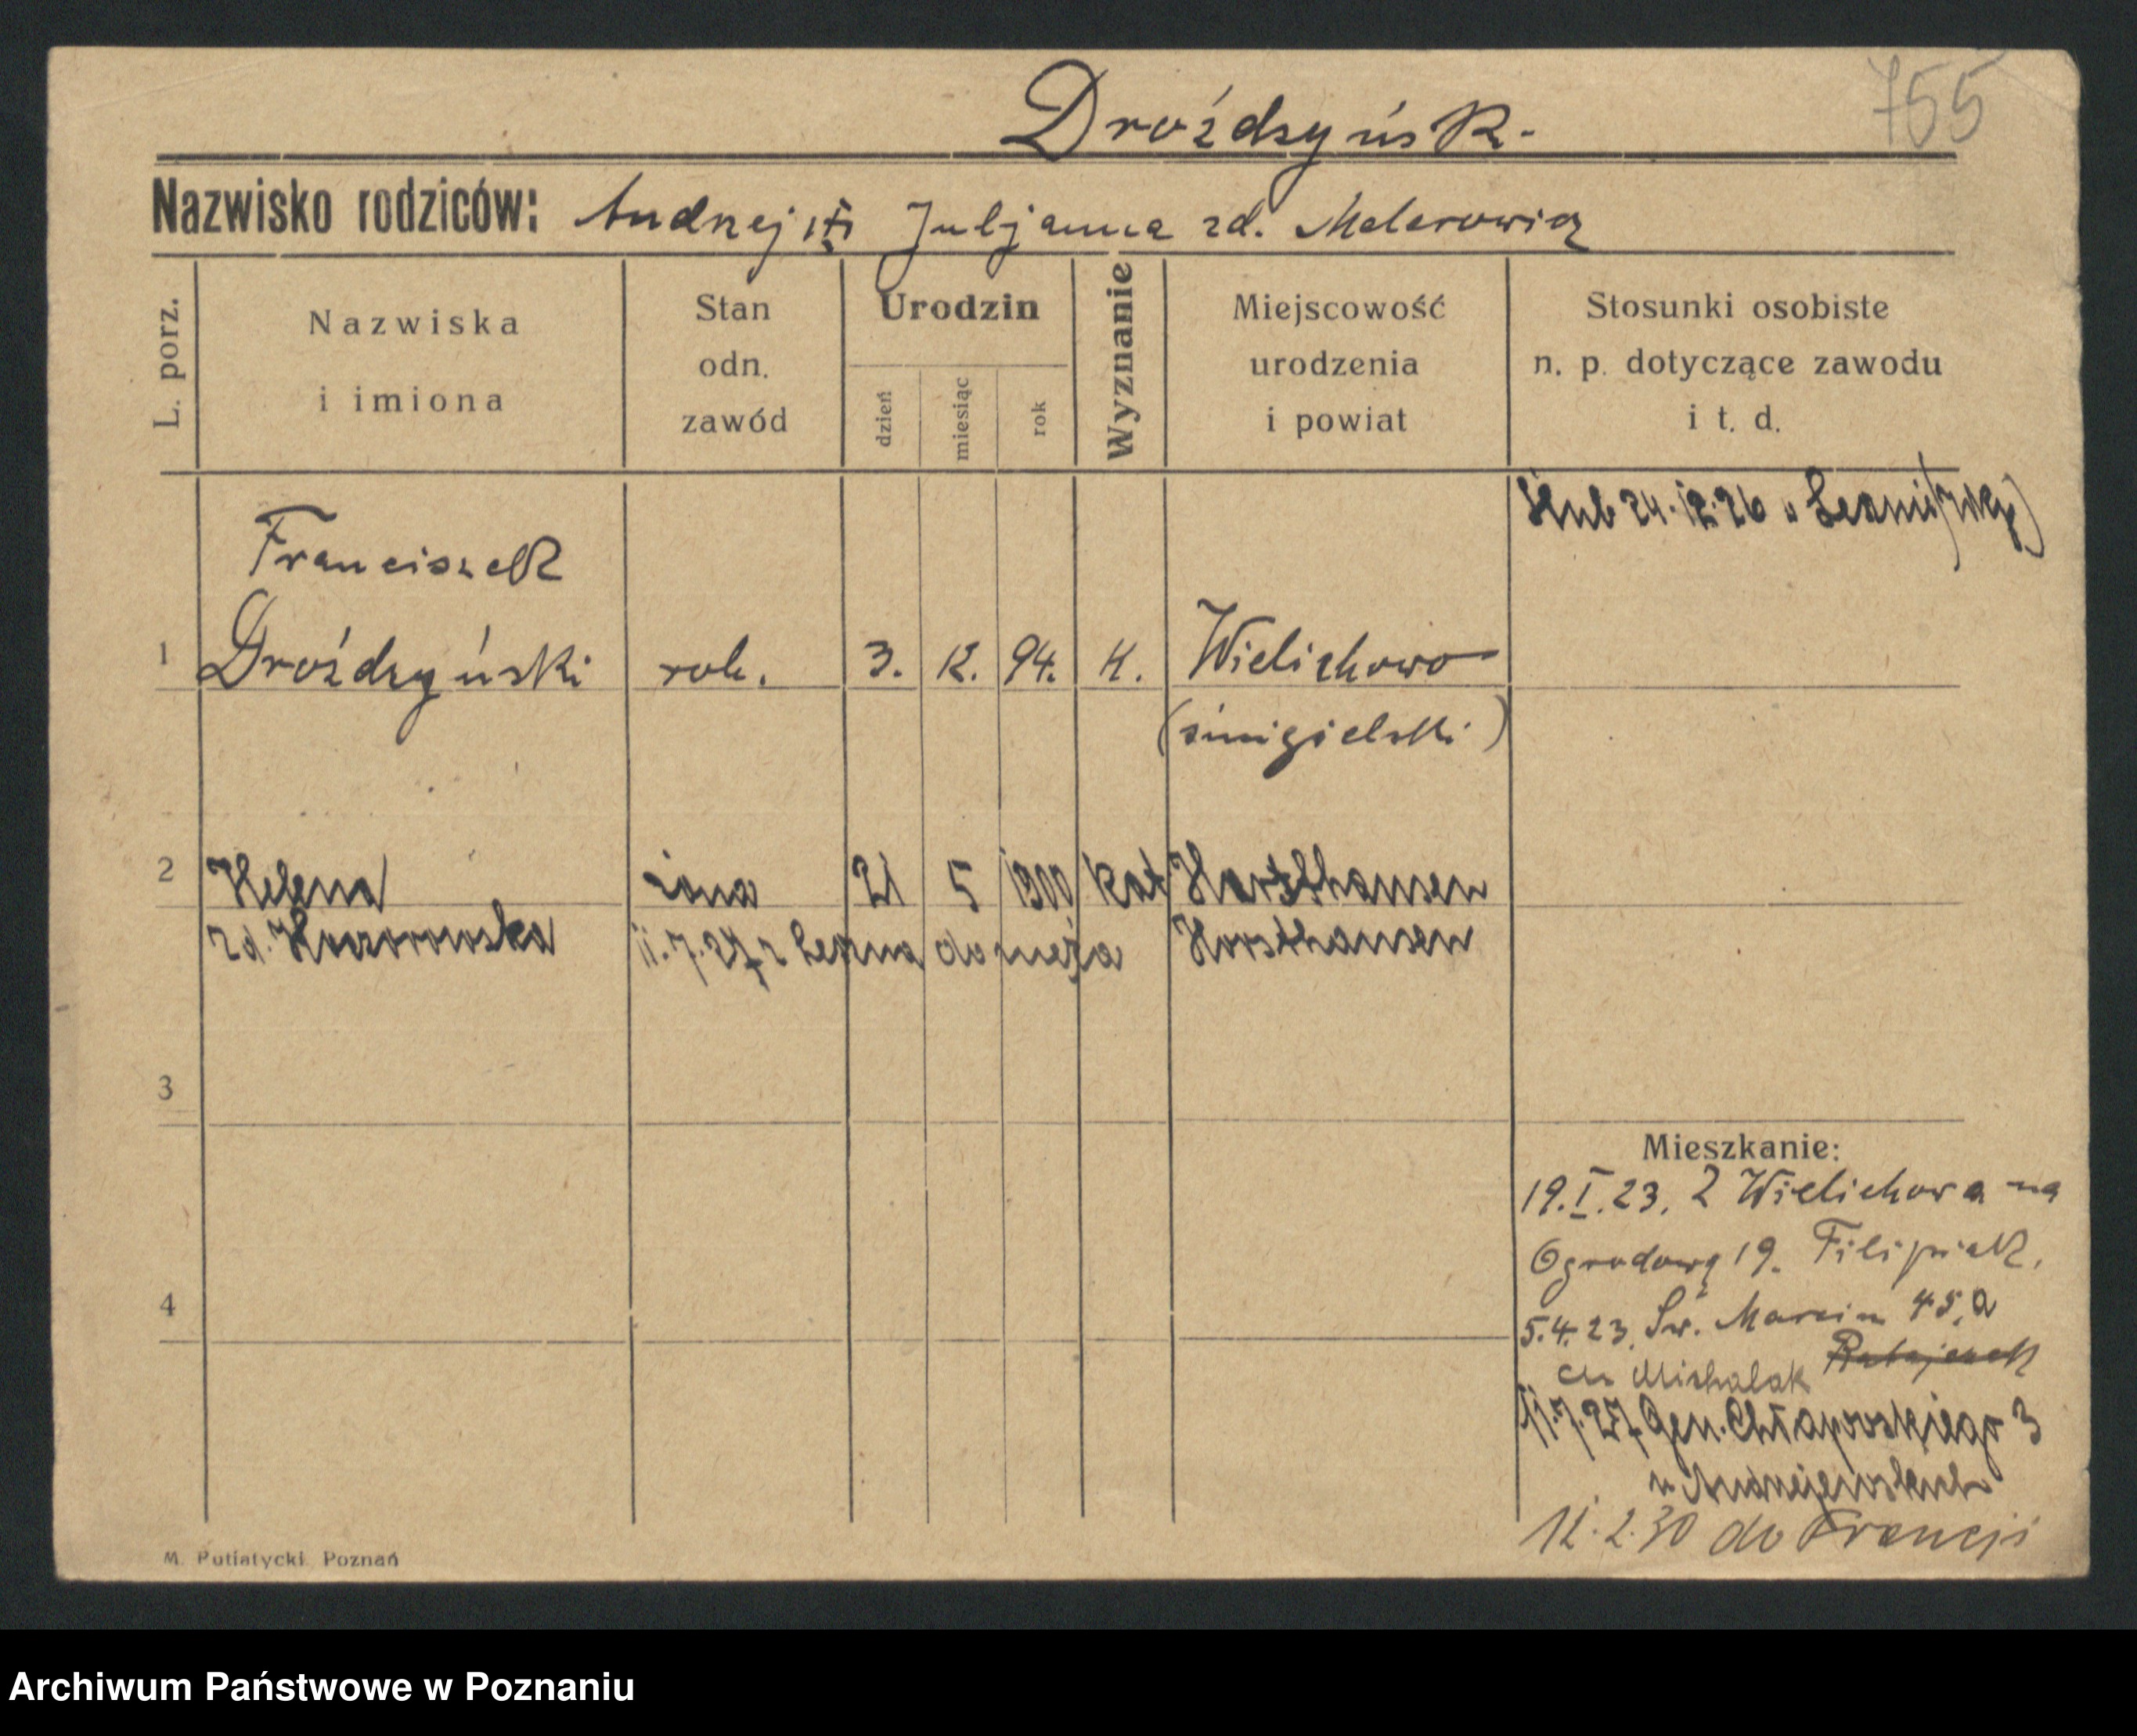 755
Droździńsk.
Nazwisko rodziców: Andrzej i Juljanna zd. Melerowicz
L. porz.
Nazwiska i imiona
Stan odn. zawód
Urodzin
dzień
miesiąc
rok
Wyznanie
Miejscowość urodzenia i powiat
Stosunki osobiste n. p. dotyczące zawodu i t. d.
Ślub 24.12.26 w
Franciszek
1 Drożdzyński rob. 3. 12. 94. K. Wielichowo
(śmigielski)
2 Helena żona 21 5 1900 kat
zd. 11.7.27 z Leszna do męża Horsthausen
3
4
Mieszkanie:
19.I.23. Z Wielichowa na
Ogrodową 19. Filipiak.
5.4.23. Św. Marcin 45,a
Ratajczak
Michalak
11.7.27 Gen. Chłapowskiego 3
u
12.2.30 do Francji
M. Putiatycki Poznań
Archiwum Państwowe w Poznaniu